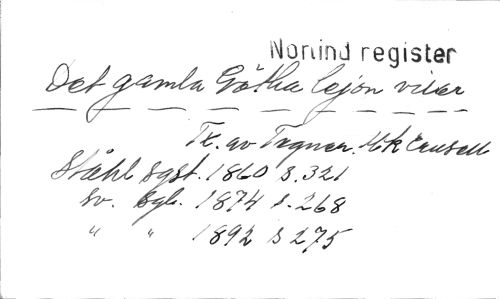 Norlind register
Det gamla Götha lejon vilar
Tx. av Tegner. Mk Crusell
Ståhl sgst. 1860 s. 321
sv. sgb. 1874 s. 268
" " 1892 s 275